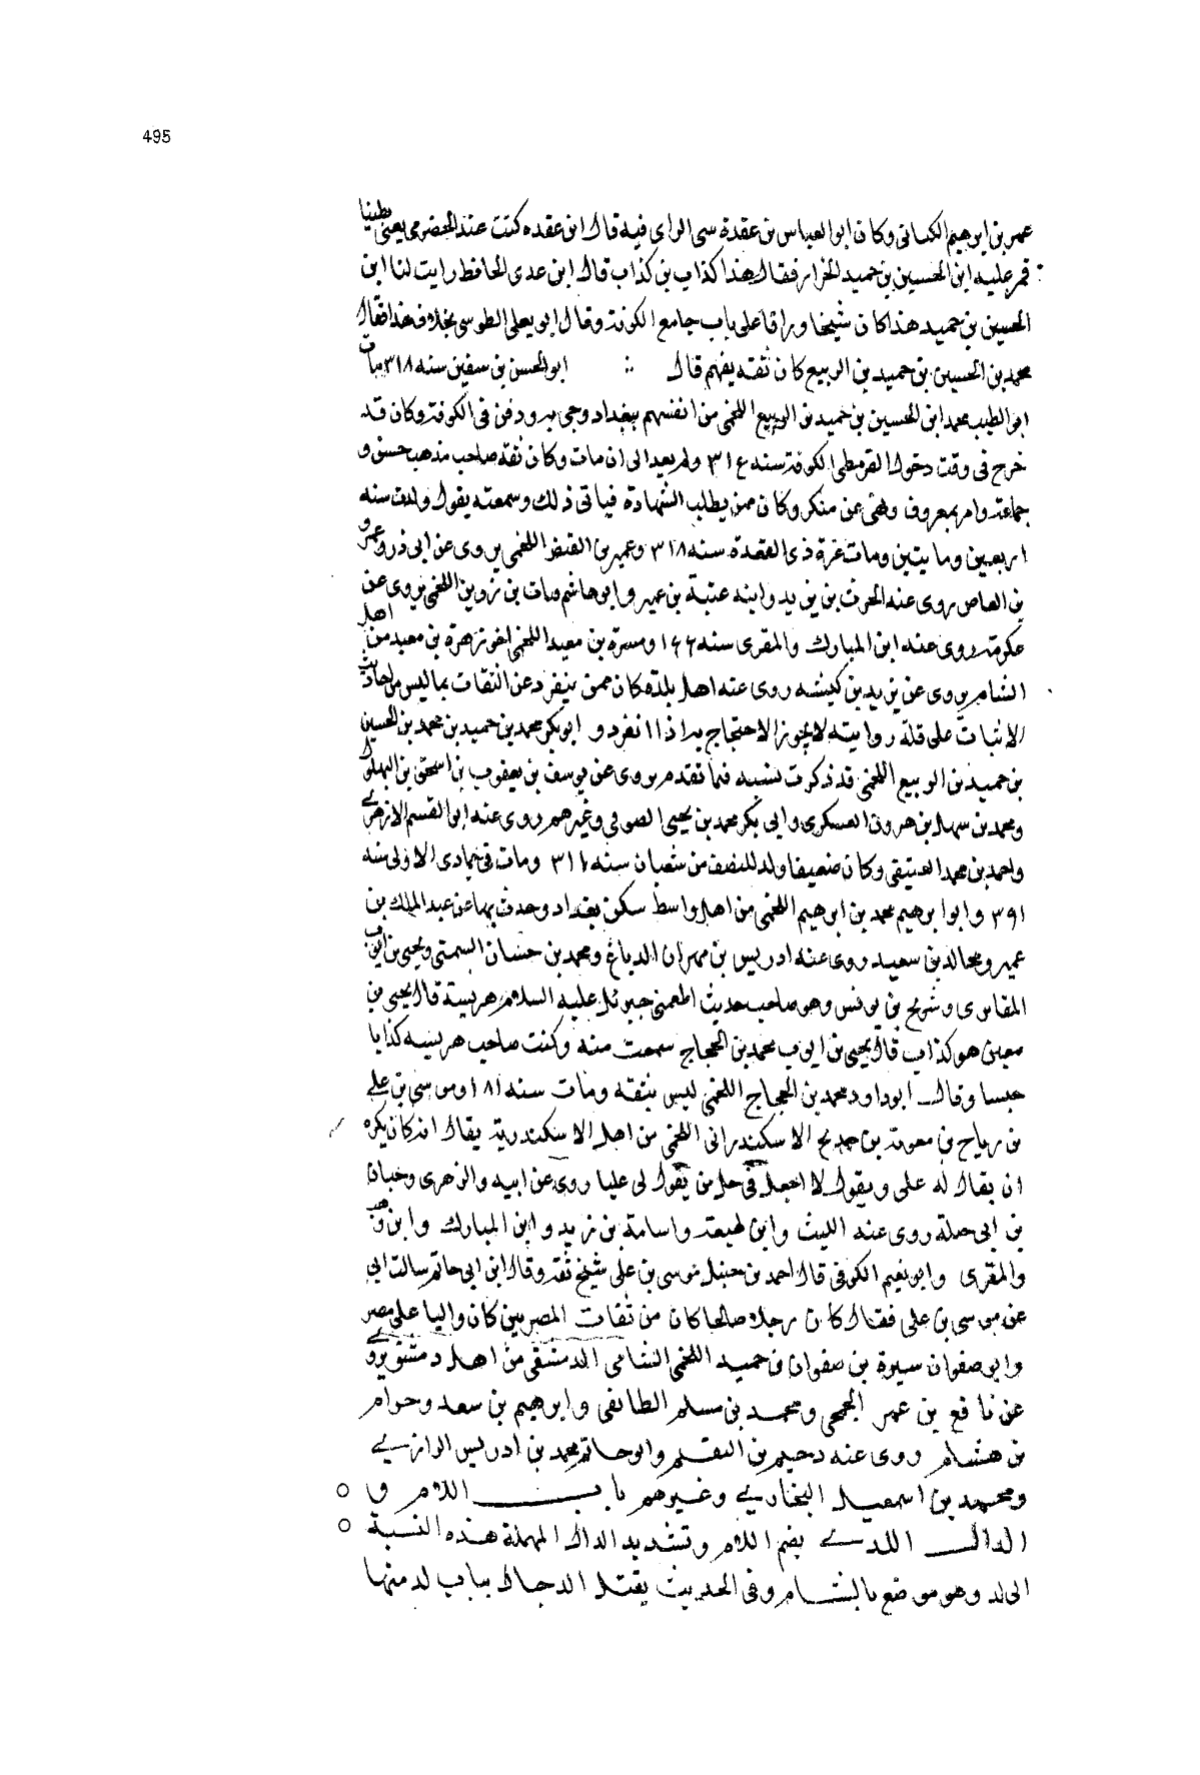 495
عمر بن ابرهيم الكتانى وكان ابو العباس بن عقدة سى الراى فيه قال ابن عقده كنت عند الحضرمى يعنى مطينا
فمر عليه ابن الحسين بن حميد الخزاز فقال هذا كذاب بن كذاب قال ابن عدى الحافظ رايت لنا ابن
الحسين بن حميد هذا كان شيخا وراقا على باب جامع الكوفة وقال ابو يعلى الطوسى بخلاف هذا فقال
محمد بن الحسين بن حميد بن الربيع كان ثقه يفهم قال ابو الحسن بن سفين سنه ٣١٨ مات
ابو الطيب محمد ابن الحسين بن حميد بن الربيع اللخمى من انفسهم ببغداد وجى به ودفن فى الكوفة وكان قد
خرج فى وقت دخول القرمطى الكوفة سنه ٣١٤ ولم يعد الى ان مات وكان ثقة صاحب مذهب حسن و
جماعة وامر بمعروف ونهى عن منكر وكان ممن يطلب الشهادة فياتى ذلك وسمعته يقول ولدت سنه
اربعين وما يتين ومات غرة ذى القعدة سنه ٣١٨ وعمير بن الفيض اللخمى يروى عن ابى ذر وعمرو
بن العاص روى عنه الحرث بن يزيد وابنه عتبة بن عمير وابو هاشم مات بن زوين اللخمى يروى عن
عكرمة روى عنه ابن المبارك والمقرى سنه ١٦٦ ومسرة بن معبد اللخمى اخو زهرة بن معبد من اهل
الشام يروى عن يزيد بن كيسه روى عنه اهل بلده كان ممن ينفرد عن الثقات بما ليس من احاديث
الاثبات على قلة روايته لا يجوز الاحتجاج به اذا انفرد و ابو بكر محمد بن حميد بن محمد بن الحسين
بن حميد بن الربيع اللخمى قد ذكرت نسبه فما تقدم يروى عن يوسف بن يعقوب بن اسحق بن البهلول
ومحمد بن سهل بن هرون العسكرى وابى بكر محمد بن يحيى الصولى وغيرهم روى عنه ابو القسم الازهرى
واحمد بن محمد العتيقى وكان ضعيفا ولد للنصف من شعبان سنه ٣١١ ومات فى جمادى الاولى سنه
٣٩١ وابو ابرهيم محمد بن ابرهيم اللخمى من اهل واسط سكن بغداد وحدث بها عن عبد الملك بن
عمير ومجالد بن سعيد روى عنه ادريس بن مهران الدباغ ومحمد بن حسان السمتى ويحيى بن ايوب
المقابرى وشريح بن يونس وهو صاحب حديث اطعمنى جبرئل عليه السلام هريسة قال يحيى بن
معين هو كذاب قال يحيى بن ايوب محمد بن الحجاج سمعت منه وكنت صاحب هريسه كذابا
خبيسا وقال ابو داود محمد بن الحجاج اللخمى ليس بثقه ومات سنه ١٨١ وموسى بن على
بن رباح بن معوية بن حديج الاسكندرانى اللخمى من اهل الاسكندرية يقال انه كان يكره
ان يقال له على ويقول لا اجعل فى حل من يقول لى عليا روى عن ابيه والزهرى وحبان
بن ابى جبلة روى عنه الليث وابن لهيعة واسامة بن زيد وابن المبارك وابن وهب
والمقرى وابو نعيم الكوفى قال احمد بن حنبل موسى بن على شيخ ثقه وقال ابن ابى حاتم سالت ابى
عن موسى بن على فقال كان رجلا صالحا كان من ثقات المصريين كان واليا على مصر
وابو صفوان سيرة بن صفوان بن حميد اللخمى الشامى الدمشقى من اهل دمشق يروى
عن نافع بن عمر الجمحى ومحمد بن مسلم الطائفى وابرهيم بن سعد وحوام
بن هشام روى عنه دحيم بن اليتيم وابو حاتم محمد بن ادريس الرازى
ومحمد بن اسمعيل البخارى وغيرهم باب اللام و
الدال اللدى بضم اللام وتشديد الدال المهملة هذه النسبة
الى لد وهو موضع بالشام وفى الحديث يقتل الدجال بباب لد منها